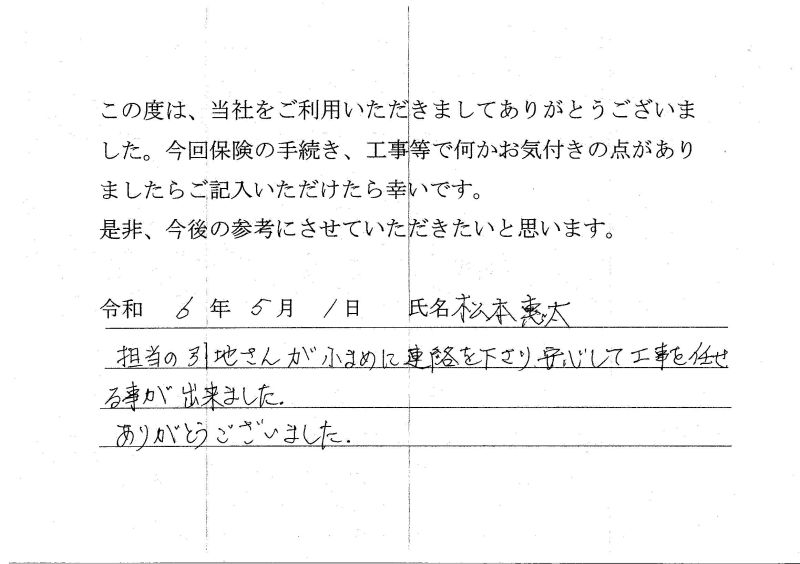 この度は、当社をご利用いただきましてありがとうございま
した。今回保険の手続き、工事等で何かお気付きの点があり
ましたらご記入いただけたら幸いです。
是非、今後の参考にさせていただきたいと思います。
令和 6 年 5 月 1 日 氏名 松本恵太
担当の引地さんが小まめに連絡を下さり安心して工事を任せ
る事が出来ました.
ありがとうございました.